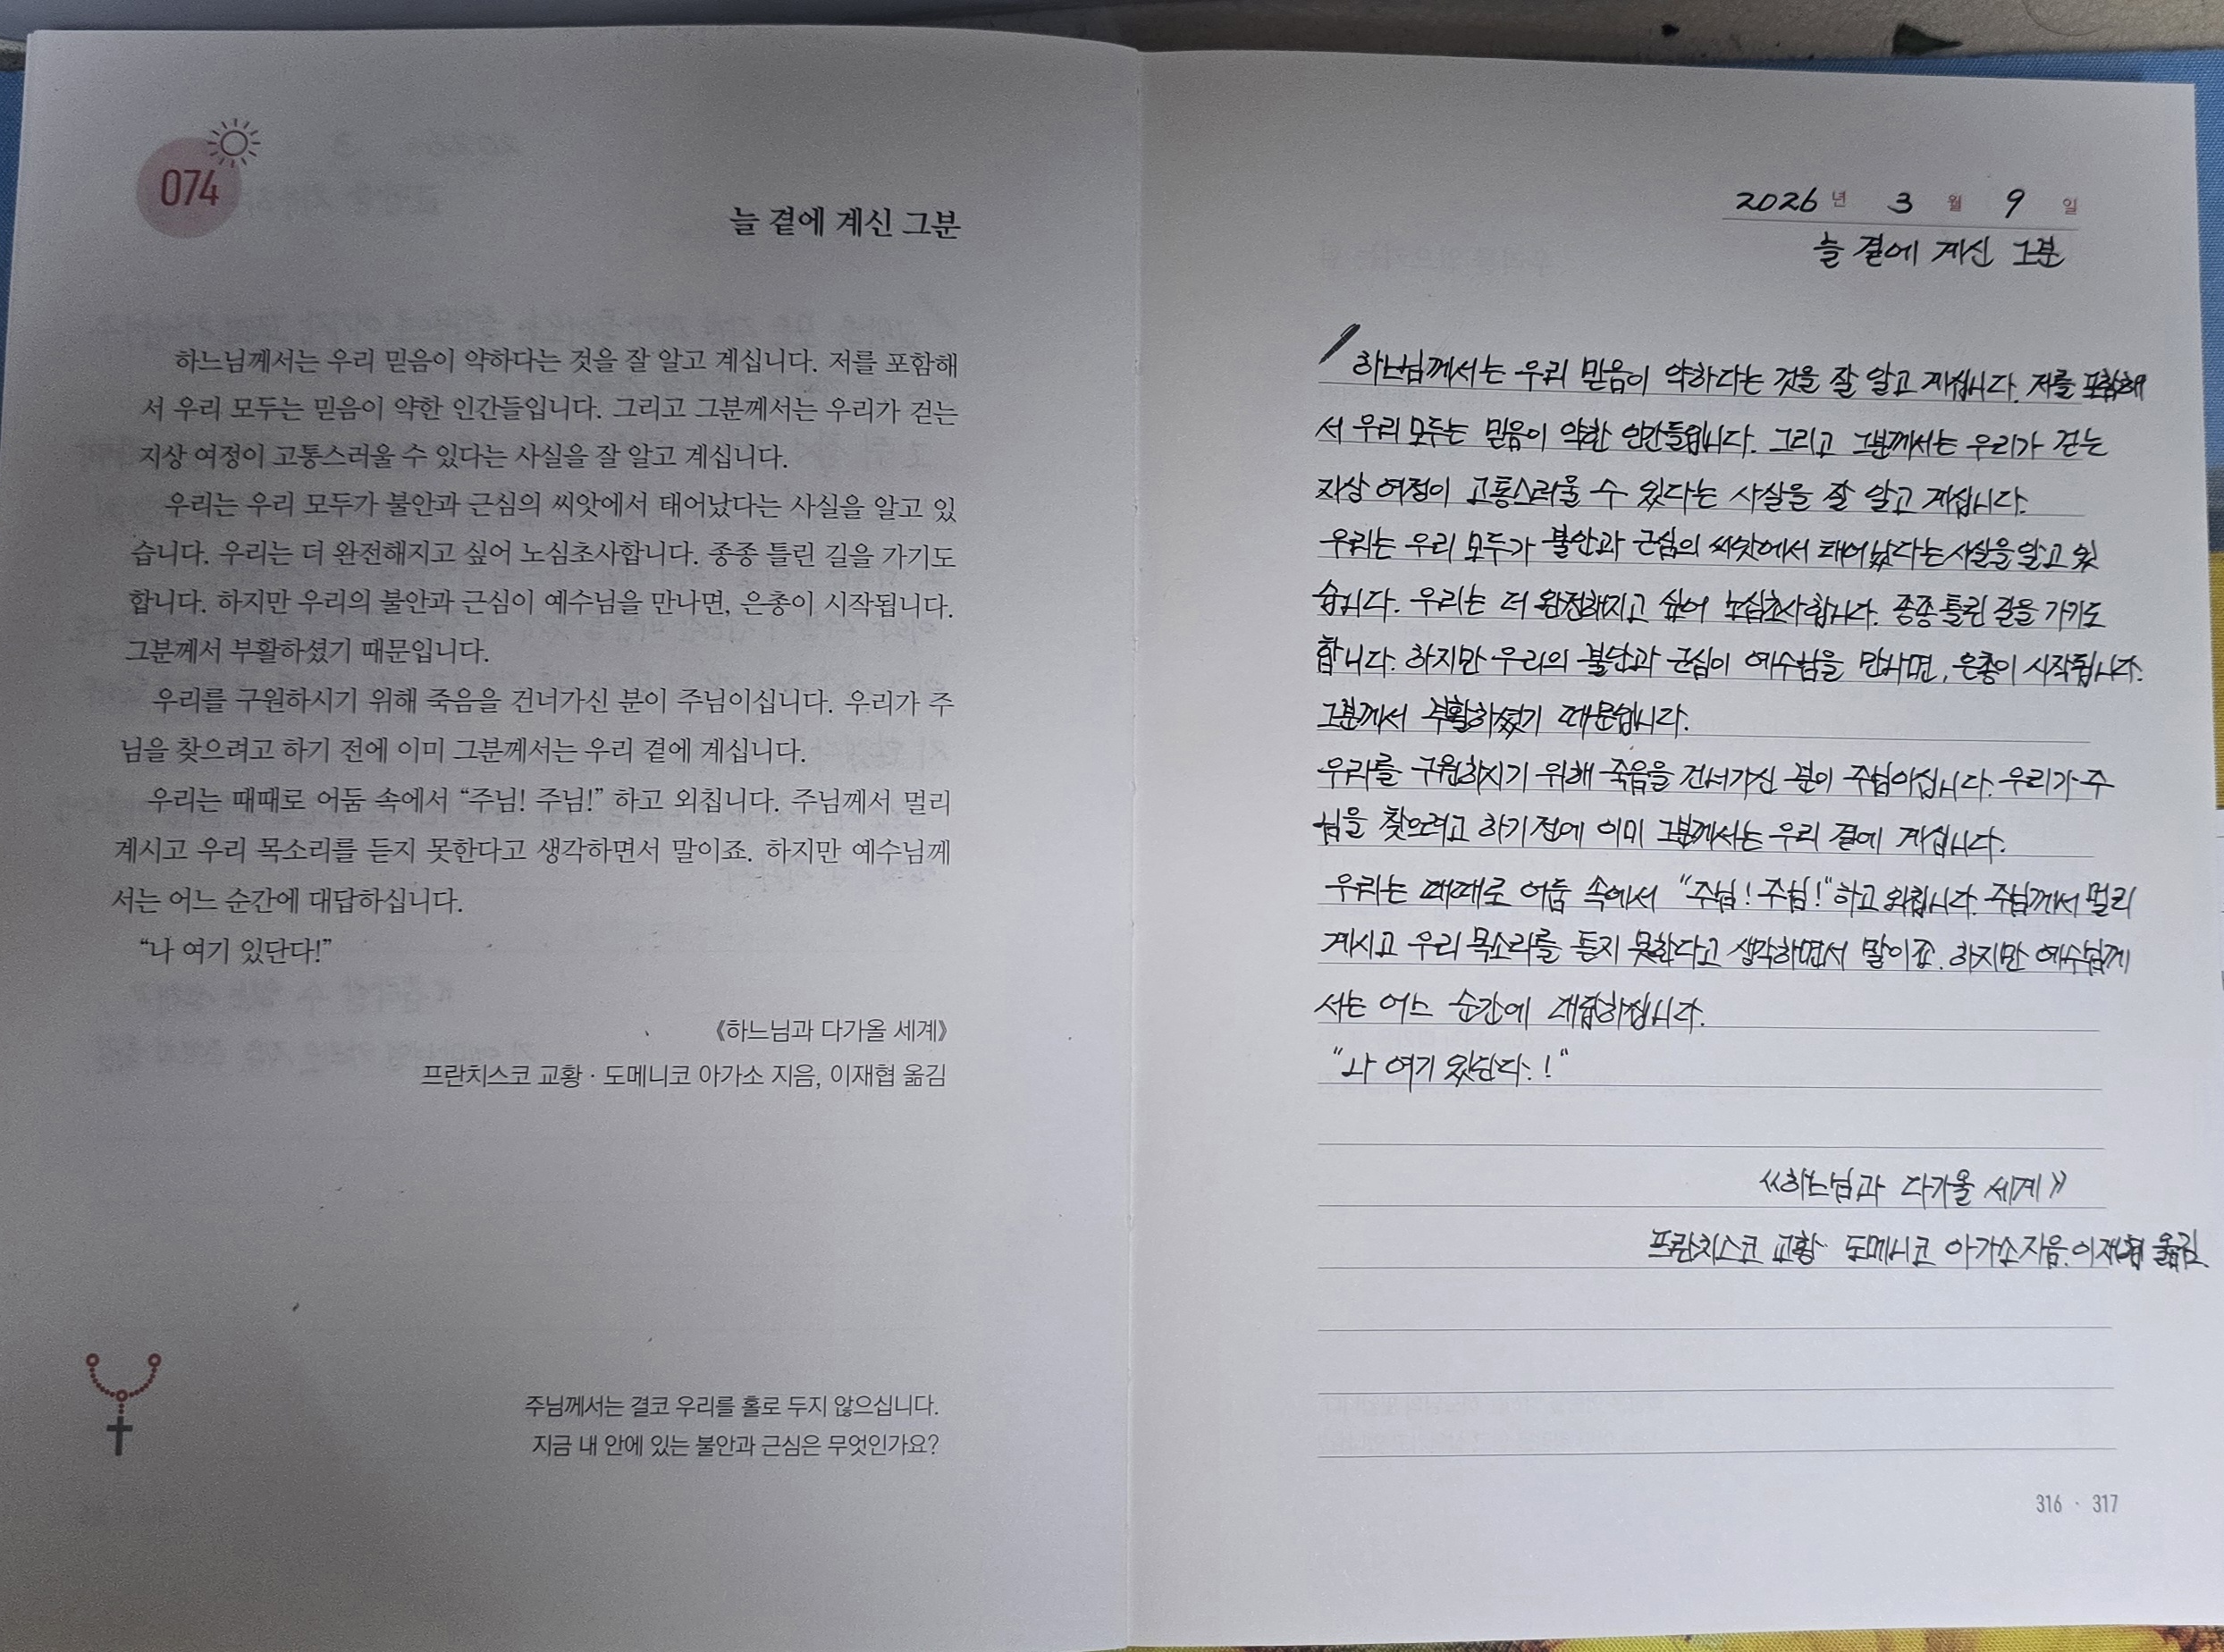 074
늘 곁에 계신 그분
하느님께서는 우리 믿음이 약하다는 것을 잘 알고 계십니다. 저를 포함해
서 우리 모두는 믿음이 약한 인간들입니다. 그리고 그분께서는 우리가 걷는
지상 여정이 고통스러울 수 있다는 사실을 잘 알고 계십니다.
우리는 우리 모두가 불안과 근심의 씨앗에서 태어났다는 사실을 알고 있
습니다. 우리는 더 완전해지고 싶어 노심초사합니다. 종종 틀린 길을 가기도
합니다. 하지만 우리의 불안과 근심이 예수님을 만나면, 은총이 시작됩니다.
그분께서 부활하셨기 때문입니다.
우리를 구원하시기 위해 죽음을 건너가신 분이 주님이십니다. 우리가 주
님을 찾으려고 하기 전에 이미 그분께서는 우리 곁에 계십니다.
우리는 때때로 어둠 속에서 “주님! 주님!” 하고 외칩니다. 주님께서 멀리
계시고 우리 목소리를 듣지 못한다고 생각하면서 말이죠. 하지만 예수님께
서는 어느 순간에 대답하십니다.
“나 여기 있단다!”
《하느님과 다가올 세계》
프란치스코 교황 · 도메니코 아가소 지음, 이재협 옮김
주님께서는 결코 우리를 홀로 두지 않으십니다.
지금 내 안에 있는 불안과 근심은 무엇인가요?
2026년 3월 9일
늘 곁에 계신 그분
하느님께서는 우리 믿음이 약하다는 것을 잘 알고 계십니다. 저를 포함해
서 우리 모두는 믿음이 약한 인간들입니다. 그리고 그분께서는 우리가 걷는
지상 여정이 고통스러울 수 있다는 사실을 잘 알고 계십니다.
우리는 우리 모두가 불안과 근심의 씨앗에서 태어났다는 사실을 알고 있
습니다. 우리는 더 완전해지고 싶어 노심초사합니다. 종종 틀린 길을 가기도
합니다. 하지만 우리의 불안과 근심이 예수님을 만나면, 은총이 시작됩니다.
그분께서 부활하셨기 때문입니다.
우리를 구원하시기 위해 죽음을 건너가신 분이 주님이십니다. 우리가 주
님을 찾으려고 하기 전에 이미 그분께서는 우리 곁에 계십니다.
우리는 때때로 어둠 속에서 “주님! 주님!” 하고 외칩니다. 주님께서 멀리
계시고 우리 목소리를 듣지 못한다고 생각하면서 말이죠. 하지만 예수님께
서는 어느 순간에 대답하십니다.
“나 여기 있단다.!”
《하느님과 다가올 세계》
프란치스코 교황· 도메니코 아가소 지음. 이재협 옮김.
316 · 317